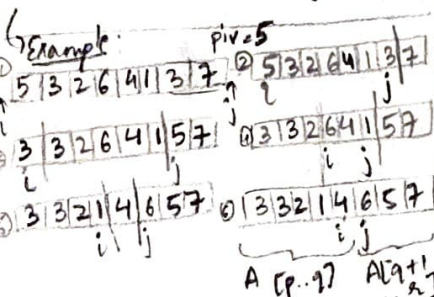 Example:
piv = 5
① 5 3 2 6 4 1 3 7
i j
② 5 3 2 6 4 1 3 7
i j
3 3 2 6 4 1 5 7
i j
④ 3 3 2 6 4 1 5 7
i j
⑤ 3 3 2 1 4 6 5 7
i j
⑥ 3 3 2 1 4 6 5 7
i j
A [p..q] A[q+1
r]